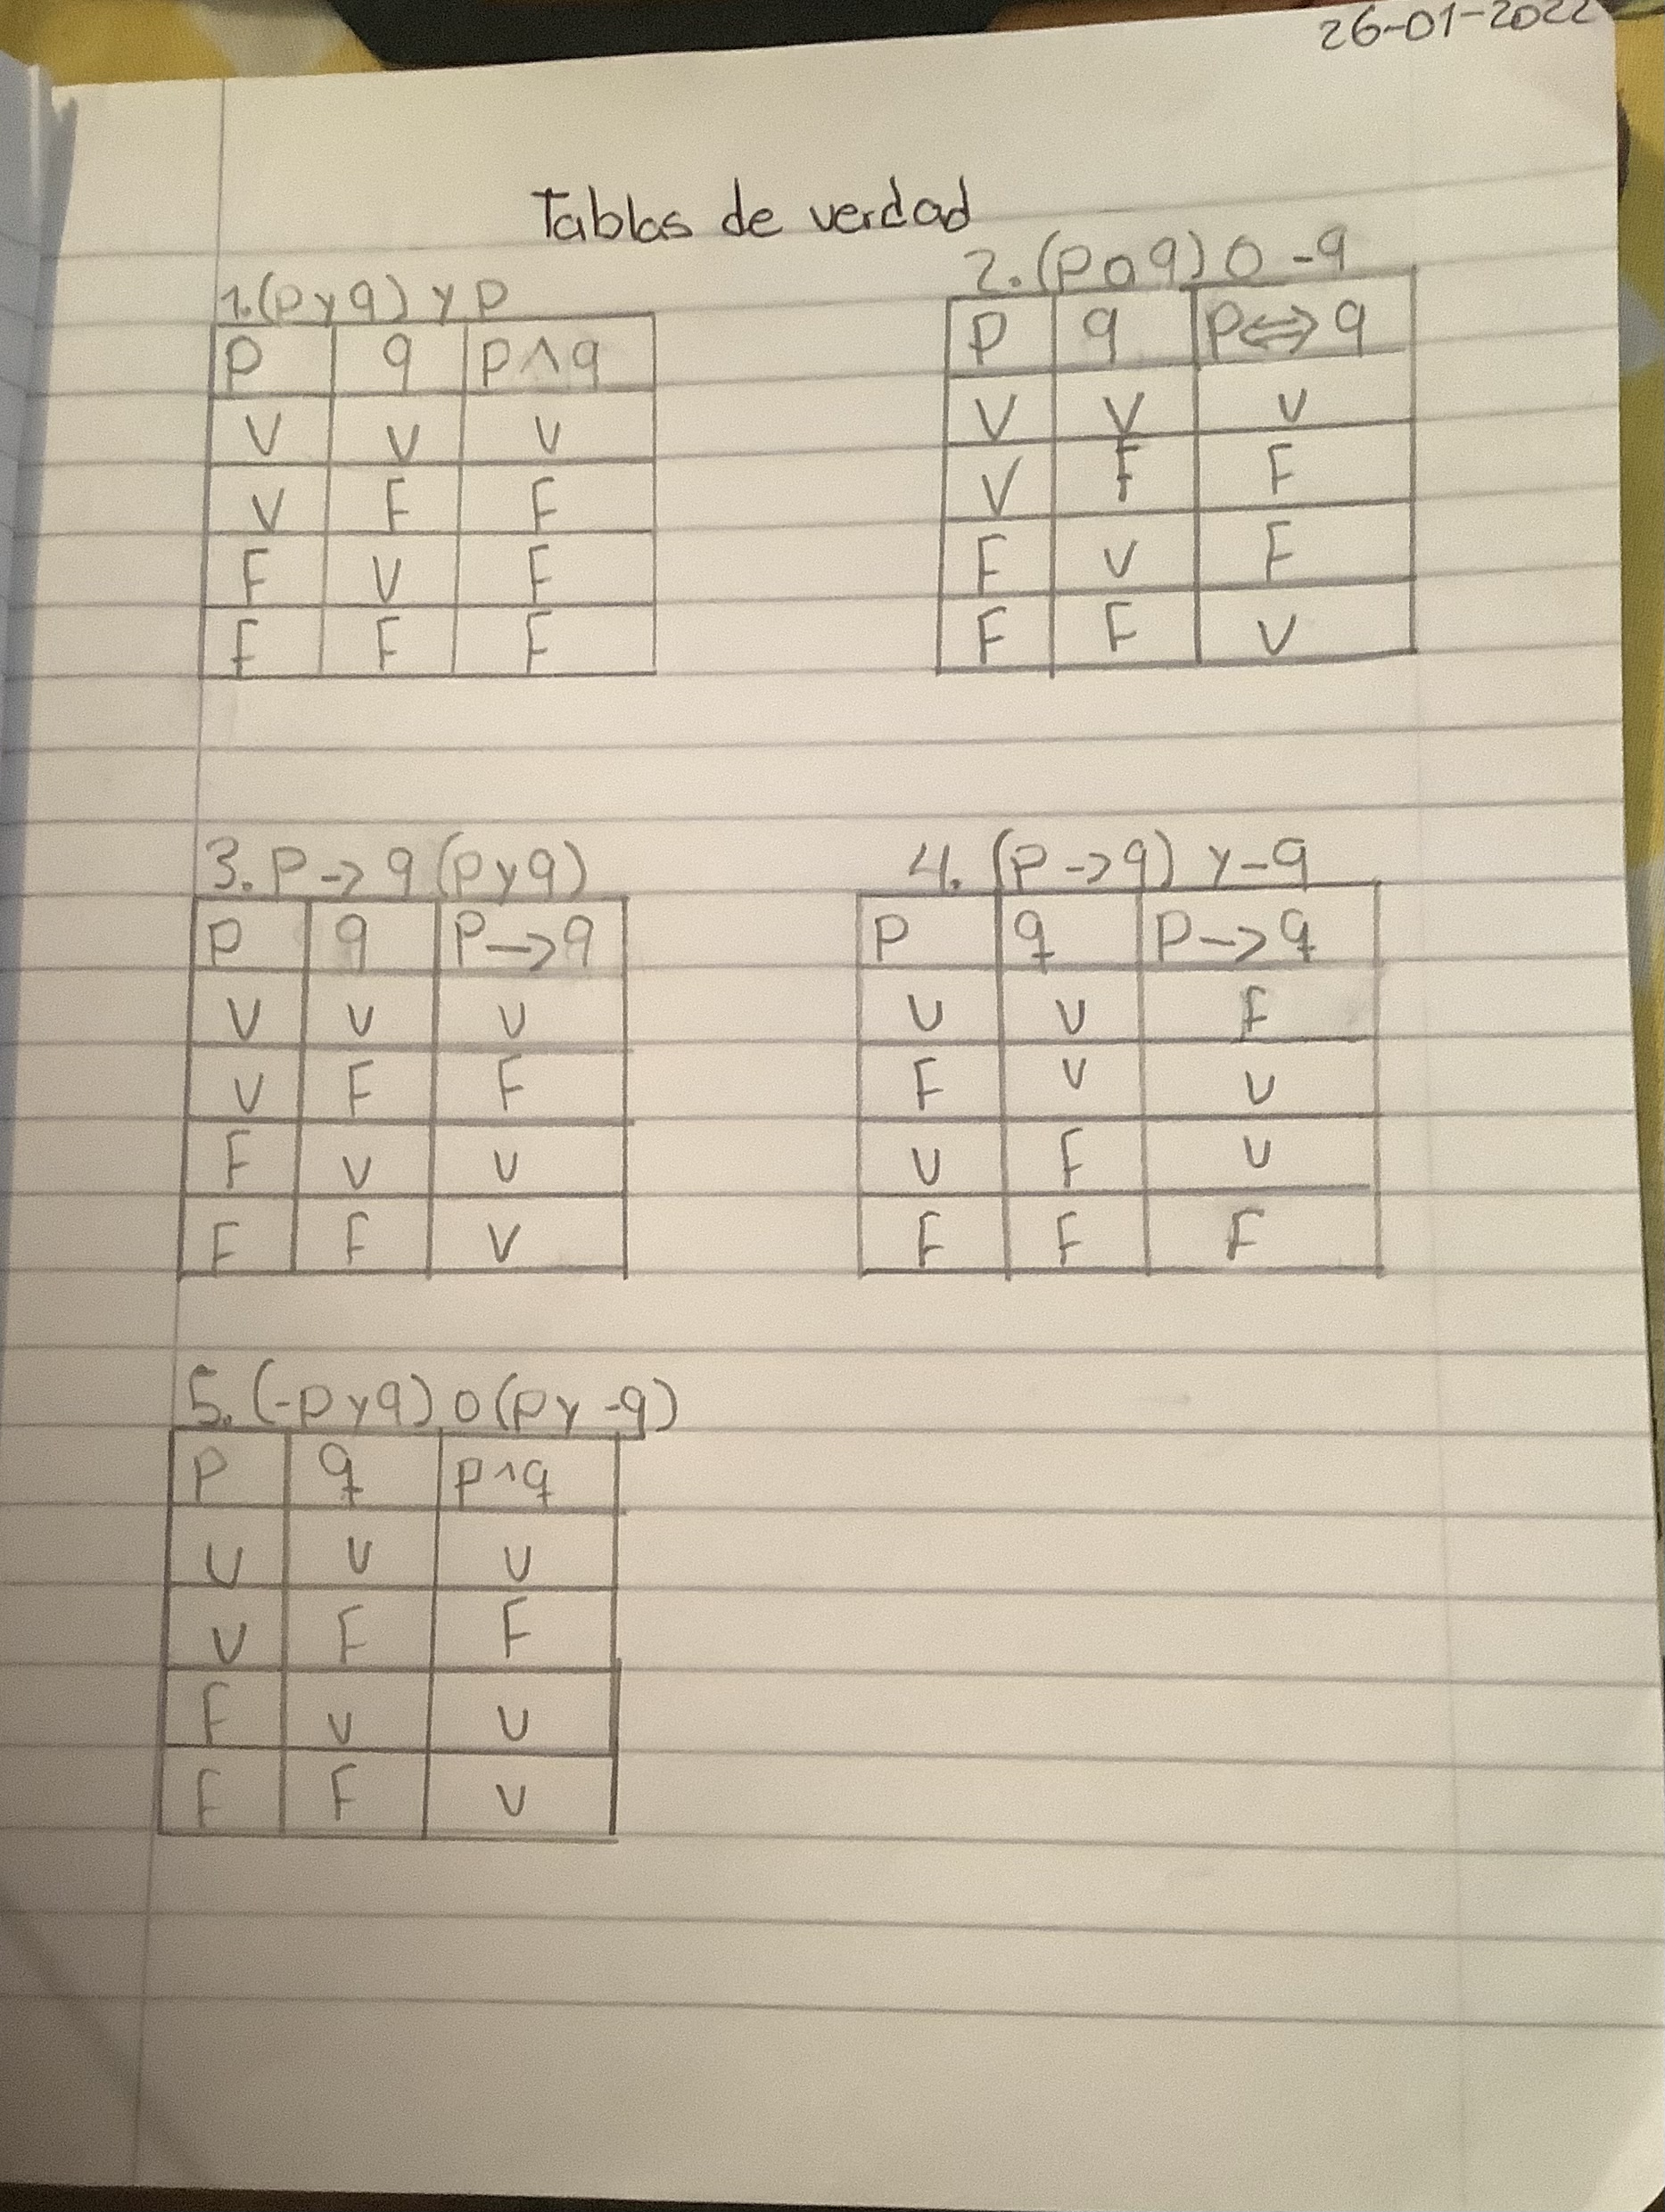 26-01-2022
Tablas de verdad
1. (p y q) y p
P q p ∧ q
V V V
V F F
F V F
F F F
2. (p o q) o -q
P q P ⇔ q
V V V
V F F
F V F
F F V
3. P -> q (p y q)
P q P -> q
V V V
V F F
F V V
F F V
4. (P -> q) y -q
P q P -> q
V V F
F V V
V F V
F F F
5. (-p y q) o (p y -q)
P q P ^ q
V V V
V F F
F V V
F F V